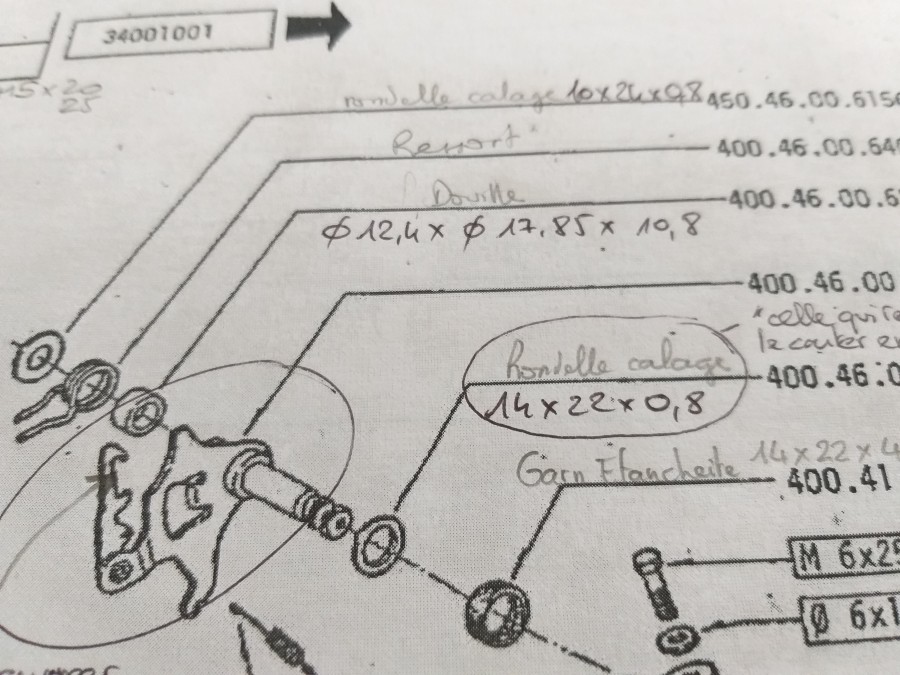 34001001
15x20
25
rondelle calage 10x24x0,8 450.46.00.615
Ressort 400.46.00.64
Douille 400.46.00.6
ϕ 12,4 x ϕ 17,85 x 10,8
400.46.00
*celle qui
le couter
Rondelle calage 400.46.0
14x22x0,8
Garn Etancheite 14x22x4
400.41
M 6x25
Ø 6x1